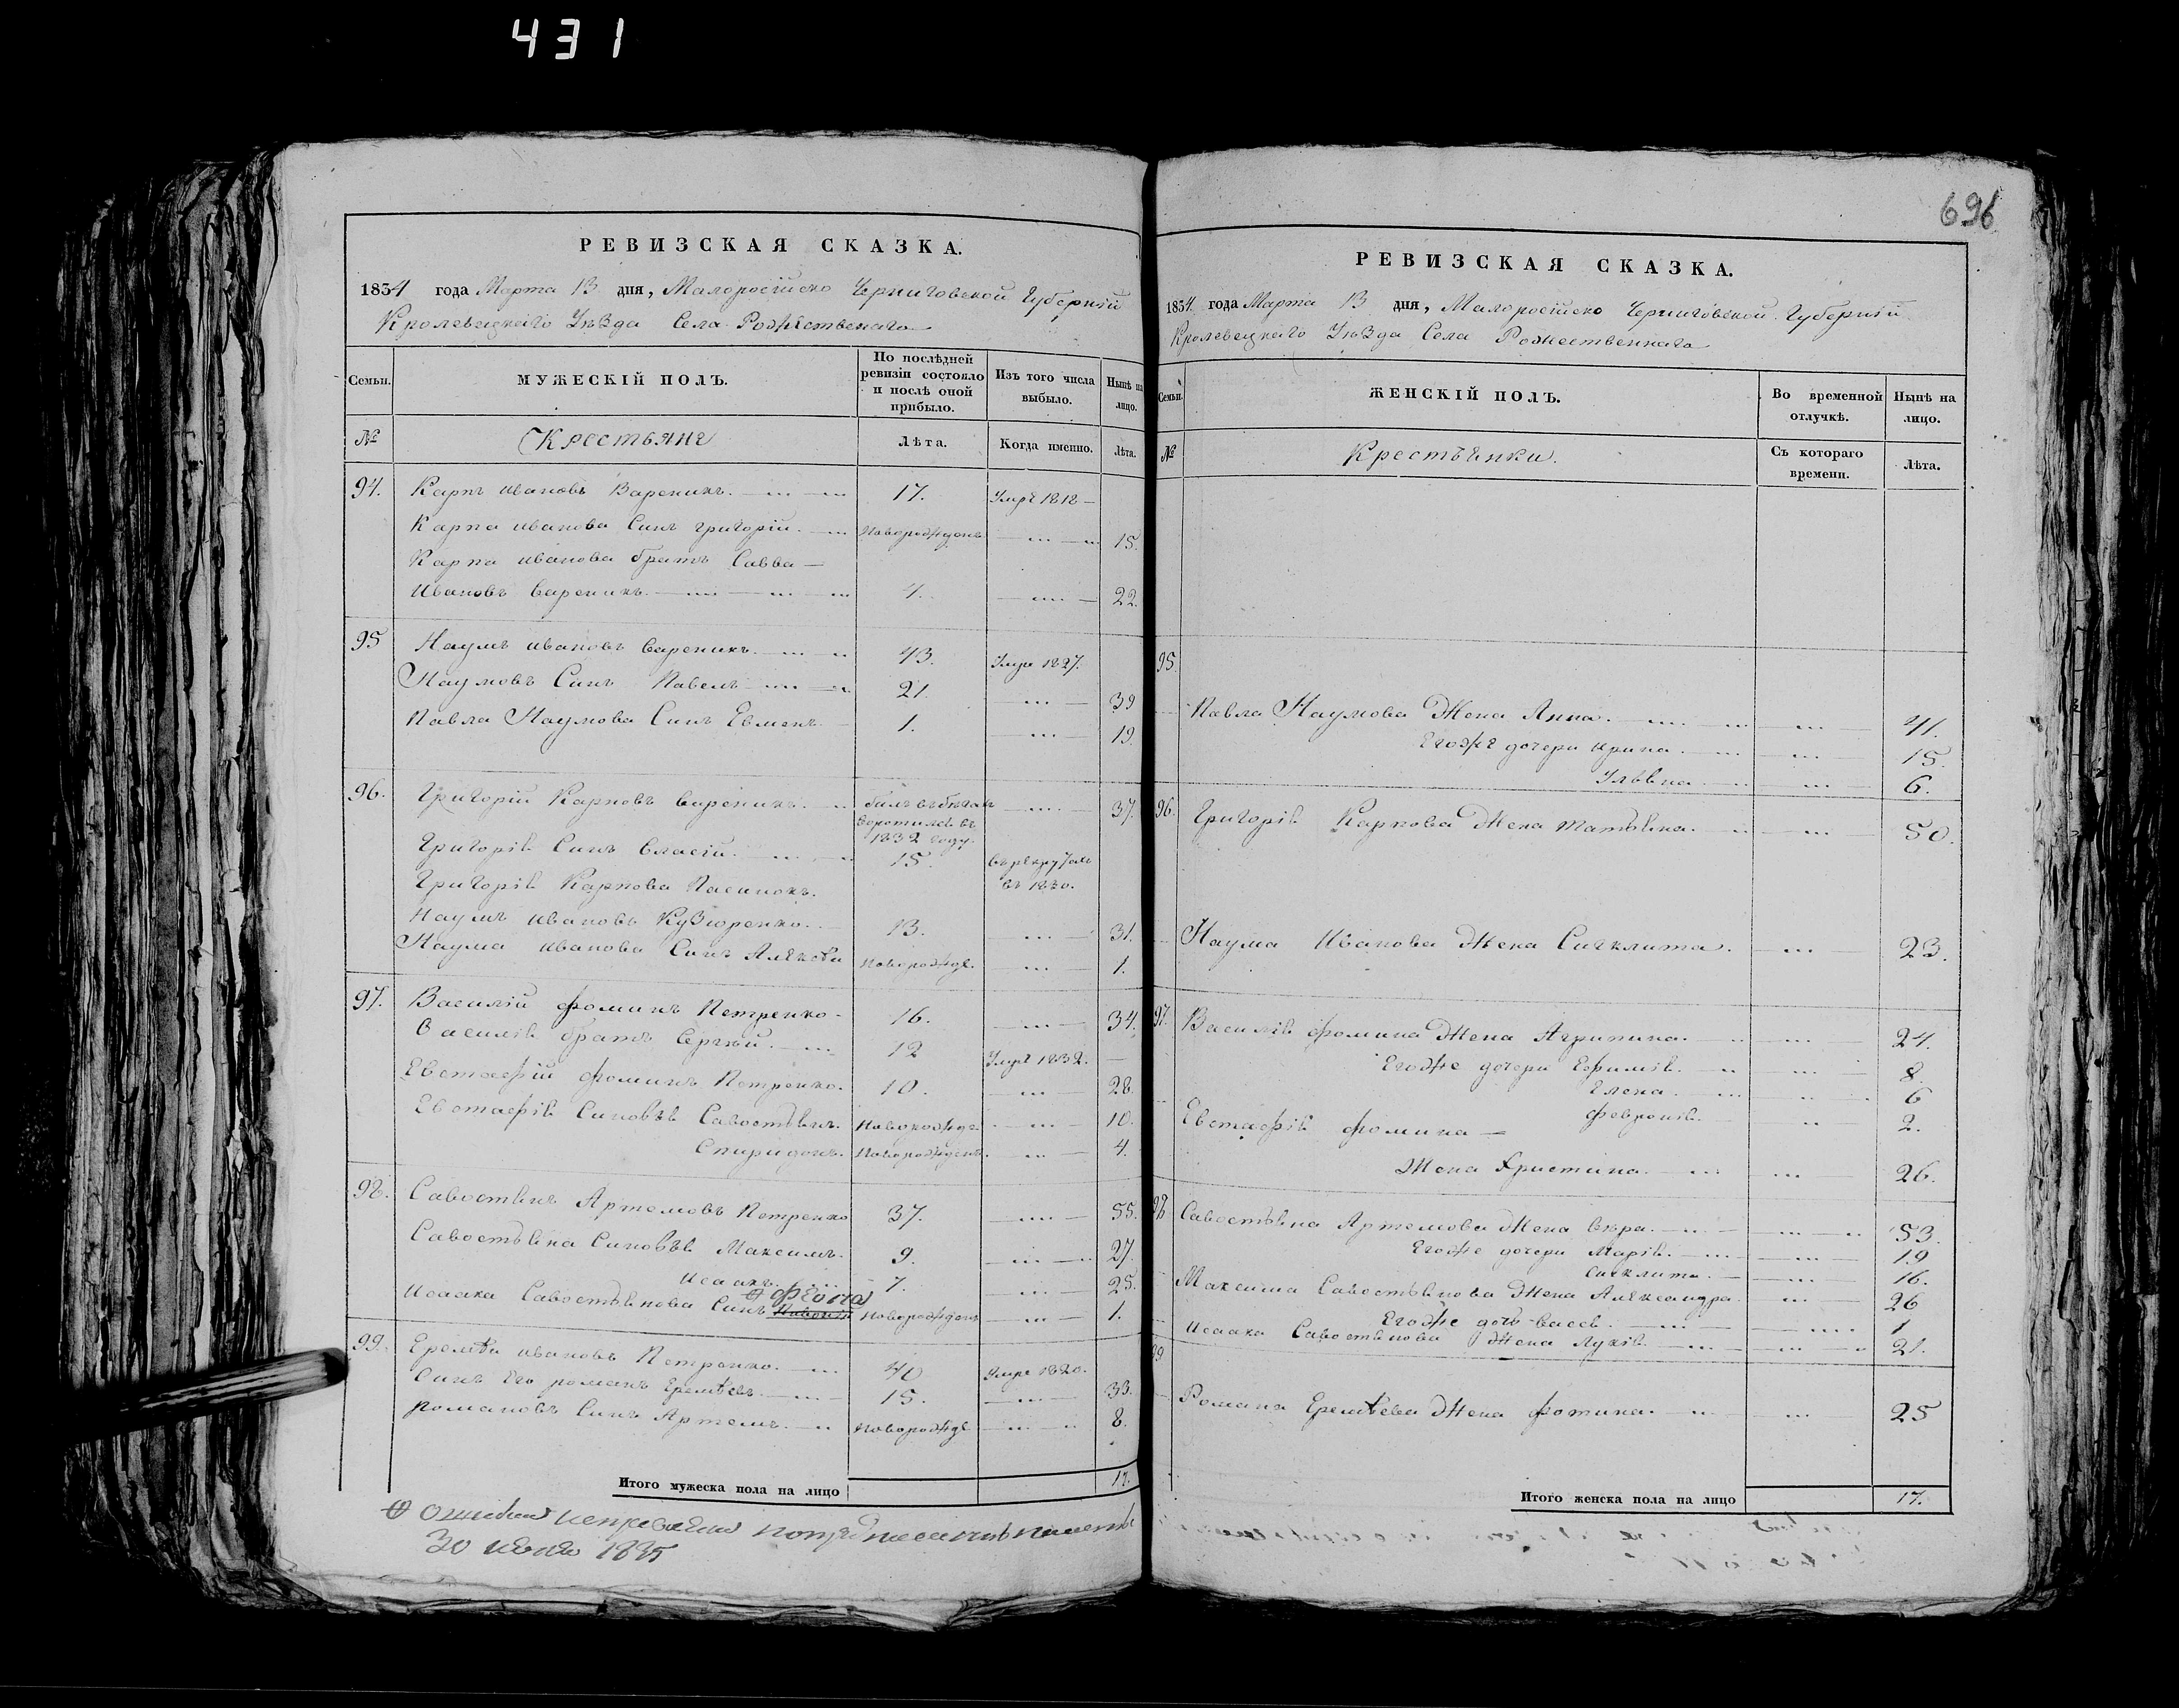 431
696
РЕВИЗСКАЯ СКАЗКА.
1834 года Марта 13 дня, Малоросійско Черниговской Губерній
Кролевецкаго Уѣзда Села Рождественаго
Семьи.
МУЖЕСКІЙ ПОЛЪ.
По послѣдней ревизіи состояло и послѣ оной прибыло.
Изъ того числа выбыло.
Нынѣ на лицо.
№
Крестьяне
Лѣта.
Когда именно.
Лѣта.
94. Карпъ ивановъ Вареникъ. 17. Умре 1818
Карпа иванова Синъ григорій. новорожденъ 15.
Карпа иванова братъ Савва
Ивановъ вареникъ 4. 22.
95 Наумъ ивановъ вареникъ. 43. Умре 1827.
Наумовъ Синъ Павелъ 21. 39
Павла Наумова Синъ Евменъ 1. 19.
96. Григорій Карповъ вареникъ. билъ въ бѣгахъ 37.
воротился въ
1832 году.
Григорія Синъ власій. 15. въ рекрутахъ
Григорія Карпова Пасинокъ. въ 1830.
Наумъ ивановъ Кузюренко. 13. 31.
Наума иванова Синъ Алексѣй новорожде. 1.
97. Василій фоминъ Петренко 16. 34.
Василія братъ Сергѣй. 12 Умре 1832.
Евстафій фоминъ Петренко. 10. 28.
Евстафія Синовья Савостьянъ. Новорожде. 10.
Спиридонъ. Новорожденъ. 4.
98. Савостьянъ Артемовъ Петренко 37. 55.
Савостьяна Синовья Максимъ. 9. 27.
Исаакъ. 7. 25.
Исаака Савостьянова Синъ феона новорожденъ 1.
99. Еремѣй ивановъ Петренко. 40 Умре 1820.
Синъ Его романъ Еремѣевъ 15. 33.
Романовъ Синъ Артемъ. новорожде 8.
Итого мужеска пола на лицо 17.
30 июня 1835
РЕВИЗСКАЯ СКАЗКА.
1834. года Марта 13 дня, Малоросійско Черниговской Губерній
Кролевецкаго Уѣзда Села Рожественнаго
Семьи.
ЖЕНСКІЙ ПОЛЪ.
Во временной отлучкѣ.
Нынѣ на лицо.
№
Крестьянки.
Съ котораго времени.
Лѣта.
95.
Павла Наумова Жена Анна. 41.
Егоже дочери ирина. 15.
Ульяна 6.
96. Григорія Карпова Жена татьяна. 50.
Наума Иванова Жена Сигклита. 23.
97. Василія фомина Жена Агрипина. 24.
Егоже дочери Ефимія. 8.
Елена. 6
февронія. 2.
Евстафія фомина
Жена христина. 26.
98 Савостьяна Артемова Жена вѣра. 53.
Егоже дочери Марія. 19
Сигклита. 16.
Максима Савостьянова Жена Александра. 26
Егоже дочь васса. 1
Исаака Савостьянова Жена Лукія. 21.
99
Романа Еремѣева Жена фотина. 25
Итого женска пола на лицо 17.